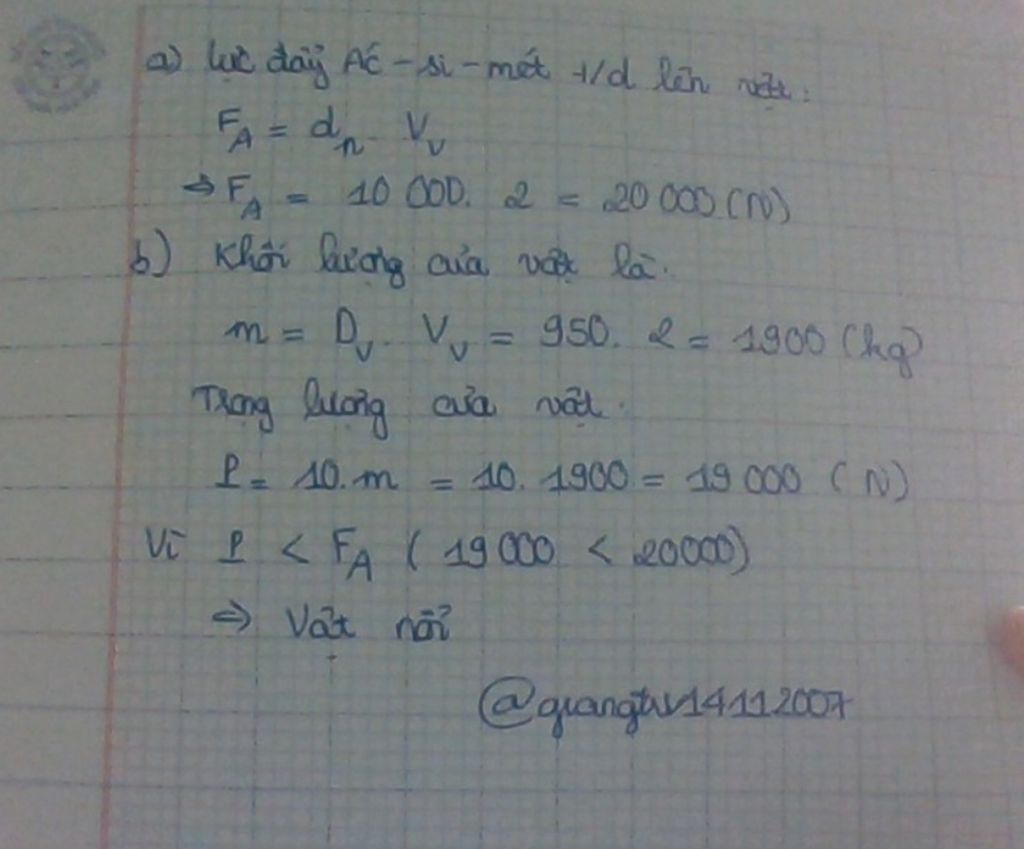 a) Lực đẩy Ác - si - mét t/d lên vật:
F_A = d_n . V_v
⇒ F_A = 10 000. 2 = 20 000 (N)
b) Khối lượng của vật là.
m = D_v . V_v = 950. 2 = 1900 (kg)
Trọng lượng của vật.
P = 10.m = 10. 1900 = 19 000 (N)
Vì P < F_A ( 19 000 < 20000)
⇒ Vật nổi